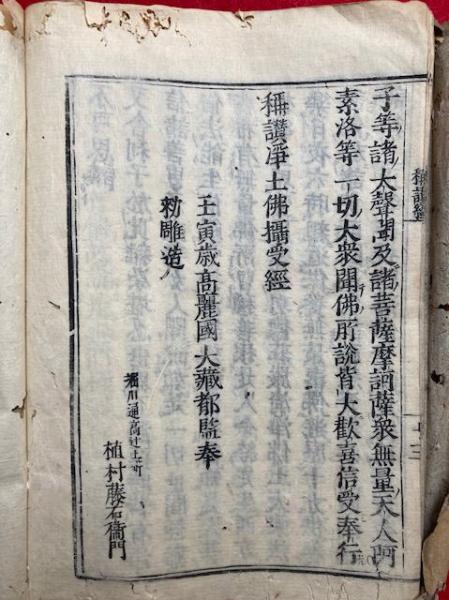 子等諸大聲聞及諸菩薩摩訶薩衆無量天人阿
素洛等一切大衆聞佛所說皆大歡喜信受奉行
稱讚淨土佛攝受經
壬寅歲高麗國大藏都監奉
勅雕造
堀川通高辻上町
植村藤右衞門
稱讃經